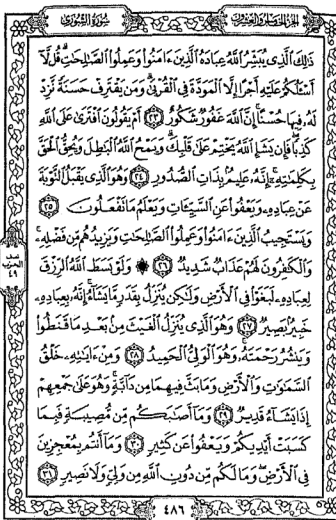 الجزء الخامس والعشرون
سورة الشورى
ذَٰلِكَ ٱلَّذِي يُبَشِّرُ ٱللَّهُ عِبَادَهُ ٱلَّذِينَ ءَامَنُوا۟ وَعَمِلُوا۟ ٱلصَّٰلِحَٰتِ ۗ قُل لَّآ
أَسْـَٔلُكُمْ عَلَيْهِ أَجْرًا إِلَّا ٱلْمَوَدَّةَ فِي ٱلْقُرْبَىٰ ۗ وَمَن يَقْتَرِفْ حَسَنَةً نَّزِدْ
لَهُۥ فِيهَا حُسْنًا ۚ إِنَّ ٱللَّهَ غَفُورٌ شَكُورٌ ٢٣ أَمْ يَقُولُونَ ٱفْتَرَىٰ عَلَى ٱللَّهِ
كَذِبًا ۖ فَإِن يَشَإِ ٱللَّهُ يَخْتِمْ عَلَىٰ قَلْبِكَ ۗ وَيَمْحُ ٱللَّهُ ٱلْبَٰطِلَ وَيُحِقُّ ٱلْحَقَّ
بِكَلِمَٰتِهِۦٓ ۚ إِنَّهُۥ عَلِيمٌۢ بِذَاتِ ٱلصُّدُورِ ٢٤ وَهُوَ ٱلَّذِي يَقْبَلُ ٱلتَّوْبَةَ
عَنْ عِبَادِهِۦ وَيَعْفُوا۟ عَنِ ٱلسَّيِّـَٔاتِ وَيَعْلَمُ مَا تَفْعَلُونَ ٢٥
وَيَسْتَجِيبُ ٱلَّذِينَ ءَامَنُوا۟ وَعَمِلُوا۟ ٱلصَّٰلِحَٰتِ وَيَزِيدُهُم مِّن فَضْلِهِۦ ۚ
وَٱلْكَٰفِرُونَ لَهُمْ عَذَابٌ شَدِيدٌ ٢٦ ۞ وَلَوْ بَسَطَ ٱللَّهُ ٱلرِّزْقَ
لِعِبَادِهِۦ لَبَغَوْا۟ فِي ٱلْأَرْضِ وَلَٰكِن يُنَزِّلُ بِقَدَرٍ مَّا يَشَآءُ ۚ إِنَّهُۥ بِعِبَادِهِۦ
خَبِيرٌۢ بَصِيرٌ ٢٧ وَهُوَ ٱلَّذِي يُنَزِّلُ ٱلْغَيْثَ مِنۢ بَعْدِ مَا قَنَطُوا۟
وَيَنشُرُ رَحْمَتَهُۥ ۚ وَهُوَ ٱلْوَلِيُّ ٱلْحَمِيدُ ٢٨ وَمِنْ ءَايَٰتِهِۦ خَلْقُ
ٱلسَّمَٰوَٰتِ وَٱلْأَرْضِ وَمَا بَثَّ فِيهِمَا مِن دَآبَّةٍ ۚ وَهُوَ عَلَىٰ جَمْعِهِمْ
إِذَا يَشَآءُ قَدِيرٌ ٢٩ وَمَآ أَصَٰبَكُم مِّن مُّصِيبَةٍ فَبِمَا
كَسَبَتْ أَيْدِيكُمْ وَيَعْفُوا۟ عَن كَثِيرٍ ٣٠ وَمَآ أَنتُم بِمُعْجِزِينَ
فِي ٱلْأَرْضِ ۖ وَمَا لَكُم مِّن دُونِ ٱللَّهِ مِن وَلِيٍّ وَلَا نَصِيرٍ ٣١
الحزب
٤٩
٤٨٦